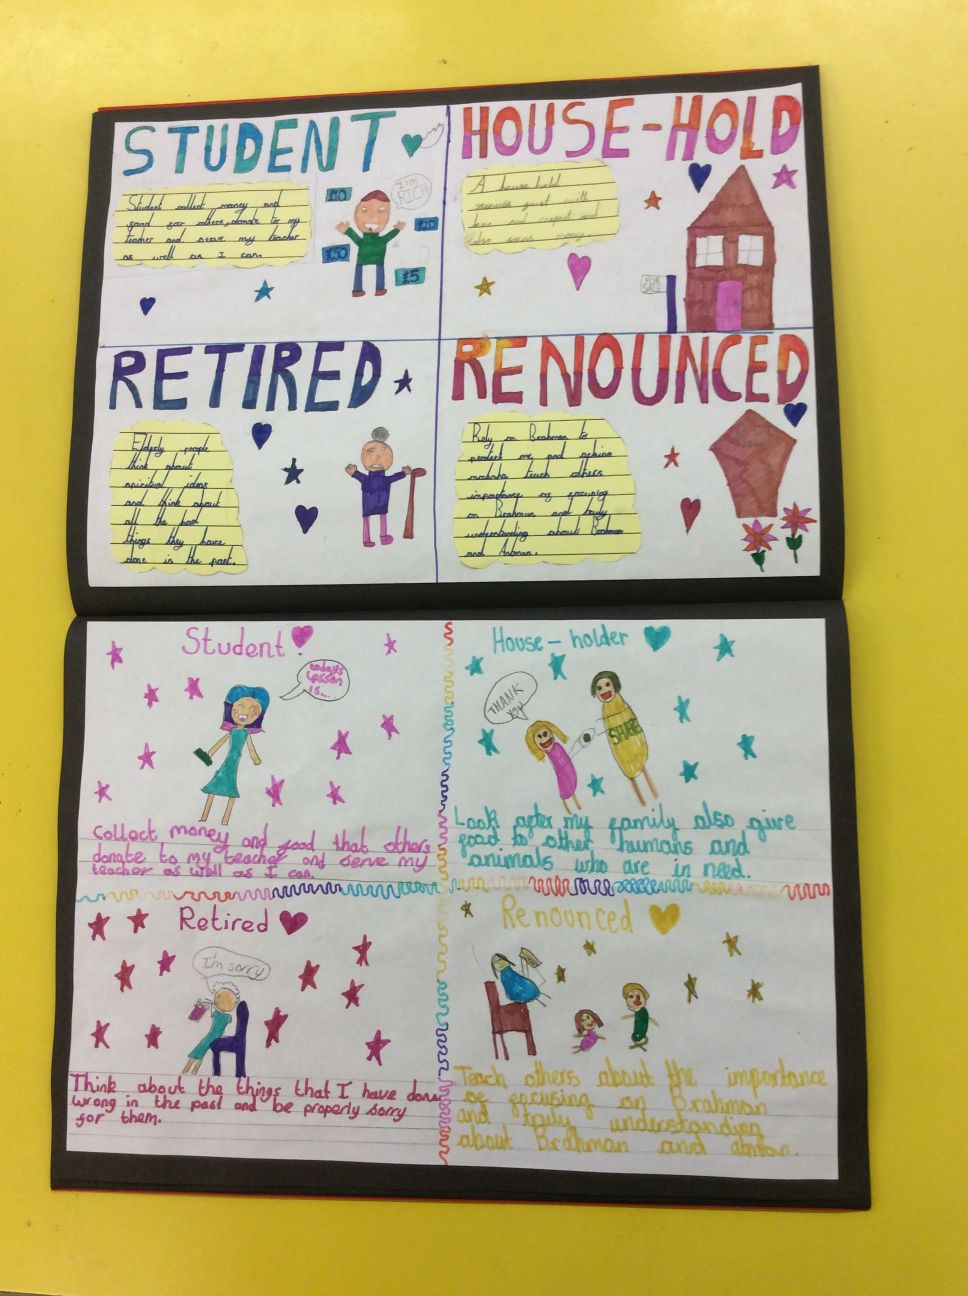 STUDENT
Student collect money and
food for others, donate to my
teacher and serve my teacher
as well as I can.
I'm
RICH
£10
£50
£5
HOUSE-HOLD
A house hold
guest with
and respect and
also earn money.
FOR
SALE
RETIRED
Elderly people
think about
spiritual ideas
and think about
all the bad
things they have
done in the past.
RENOUNCED
Rely on Brahman to
protect me and achive
moksha teach others
importance of focusing
on Brahman and truly
understanding about Brahman
and Atman.
Student!
todays
lesson
is...
Collect money and food that others
donate to my teacher and serve my
teacher as well as I can.
House-holder
THANK
YOU
SHARE
Look after my family also give
food to other humans and
animals who are in need.
Retired
I'm sorry
Think about the things that I have done
wrong in the past and be properly sorry
for them.
Renounced
Teach others about the importance
of focusing on Brahman
and truly understanding
about Brahman and atman.